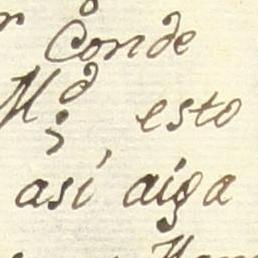 Conde
M.d esto
asi aiga